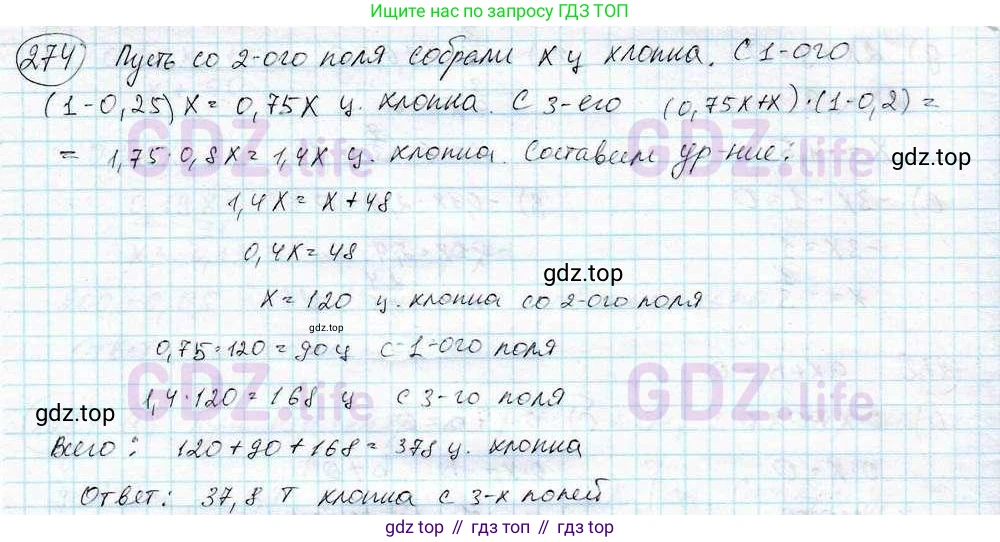 Ищите по запросу ГДЗ ТОП
274 Пусть со 2-ого поля собрали x ц хлопка. С 1-ого
(1-0,25)x = 0,75x ц. хлопка. С 3-его (0,75x+x)·(1-0,2)=
= 1,75·0,8x = 1,4x ц. хлопка. Составим ур-ние:
gdz.top
1,4x = x + 48
0,4x = 48
gdz.top
x = 120 ц. хлопка со 2-ого поля
gdz.top
0,75·120 = 90 ц с 1-ого поля
1,4·120 = 168 ц с 3-го поля
gdz.top
Всего: 120+90+168 = 378 ц. хлопка
Ответ: 37,8 т хлопка с 3-х полей
GDZ.life
GDZ.life
GDZ.life
GDZ.life
gdz top // гдз топ // gdz.top